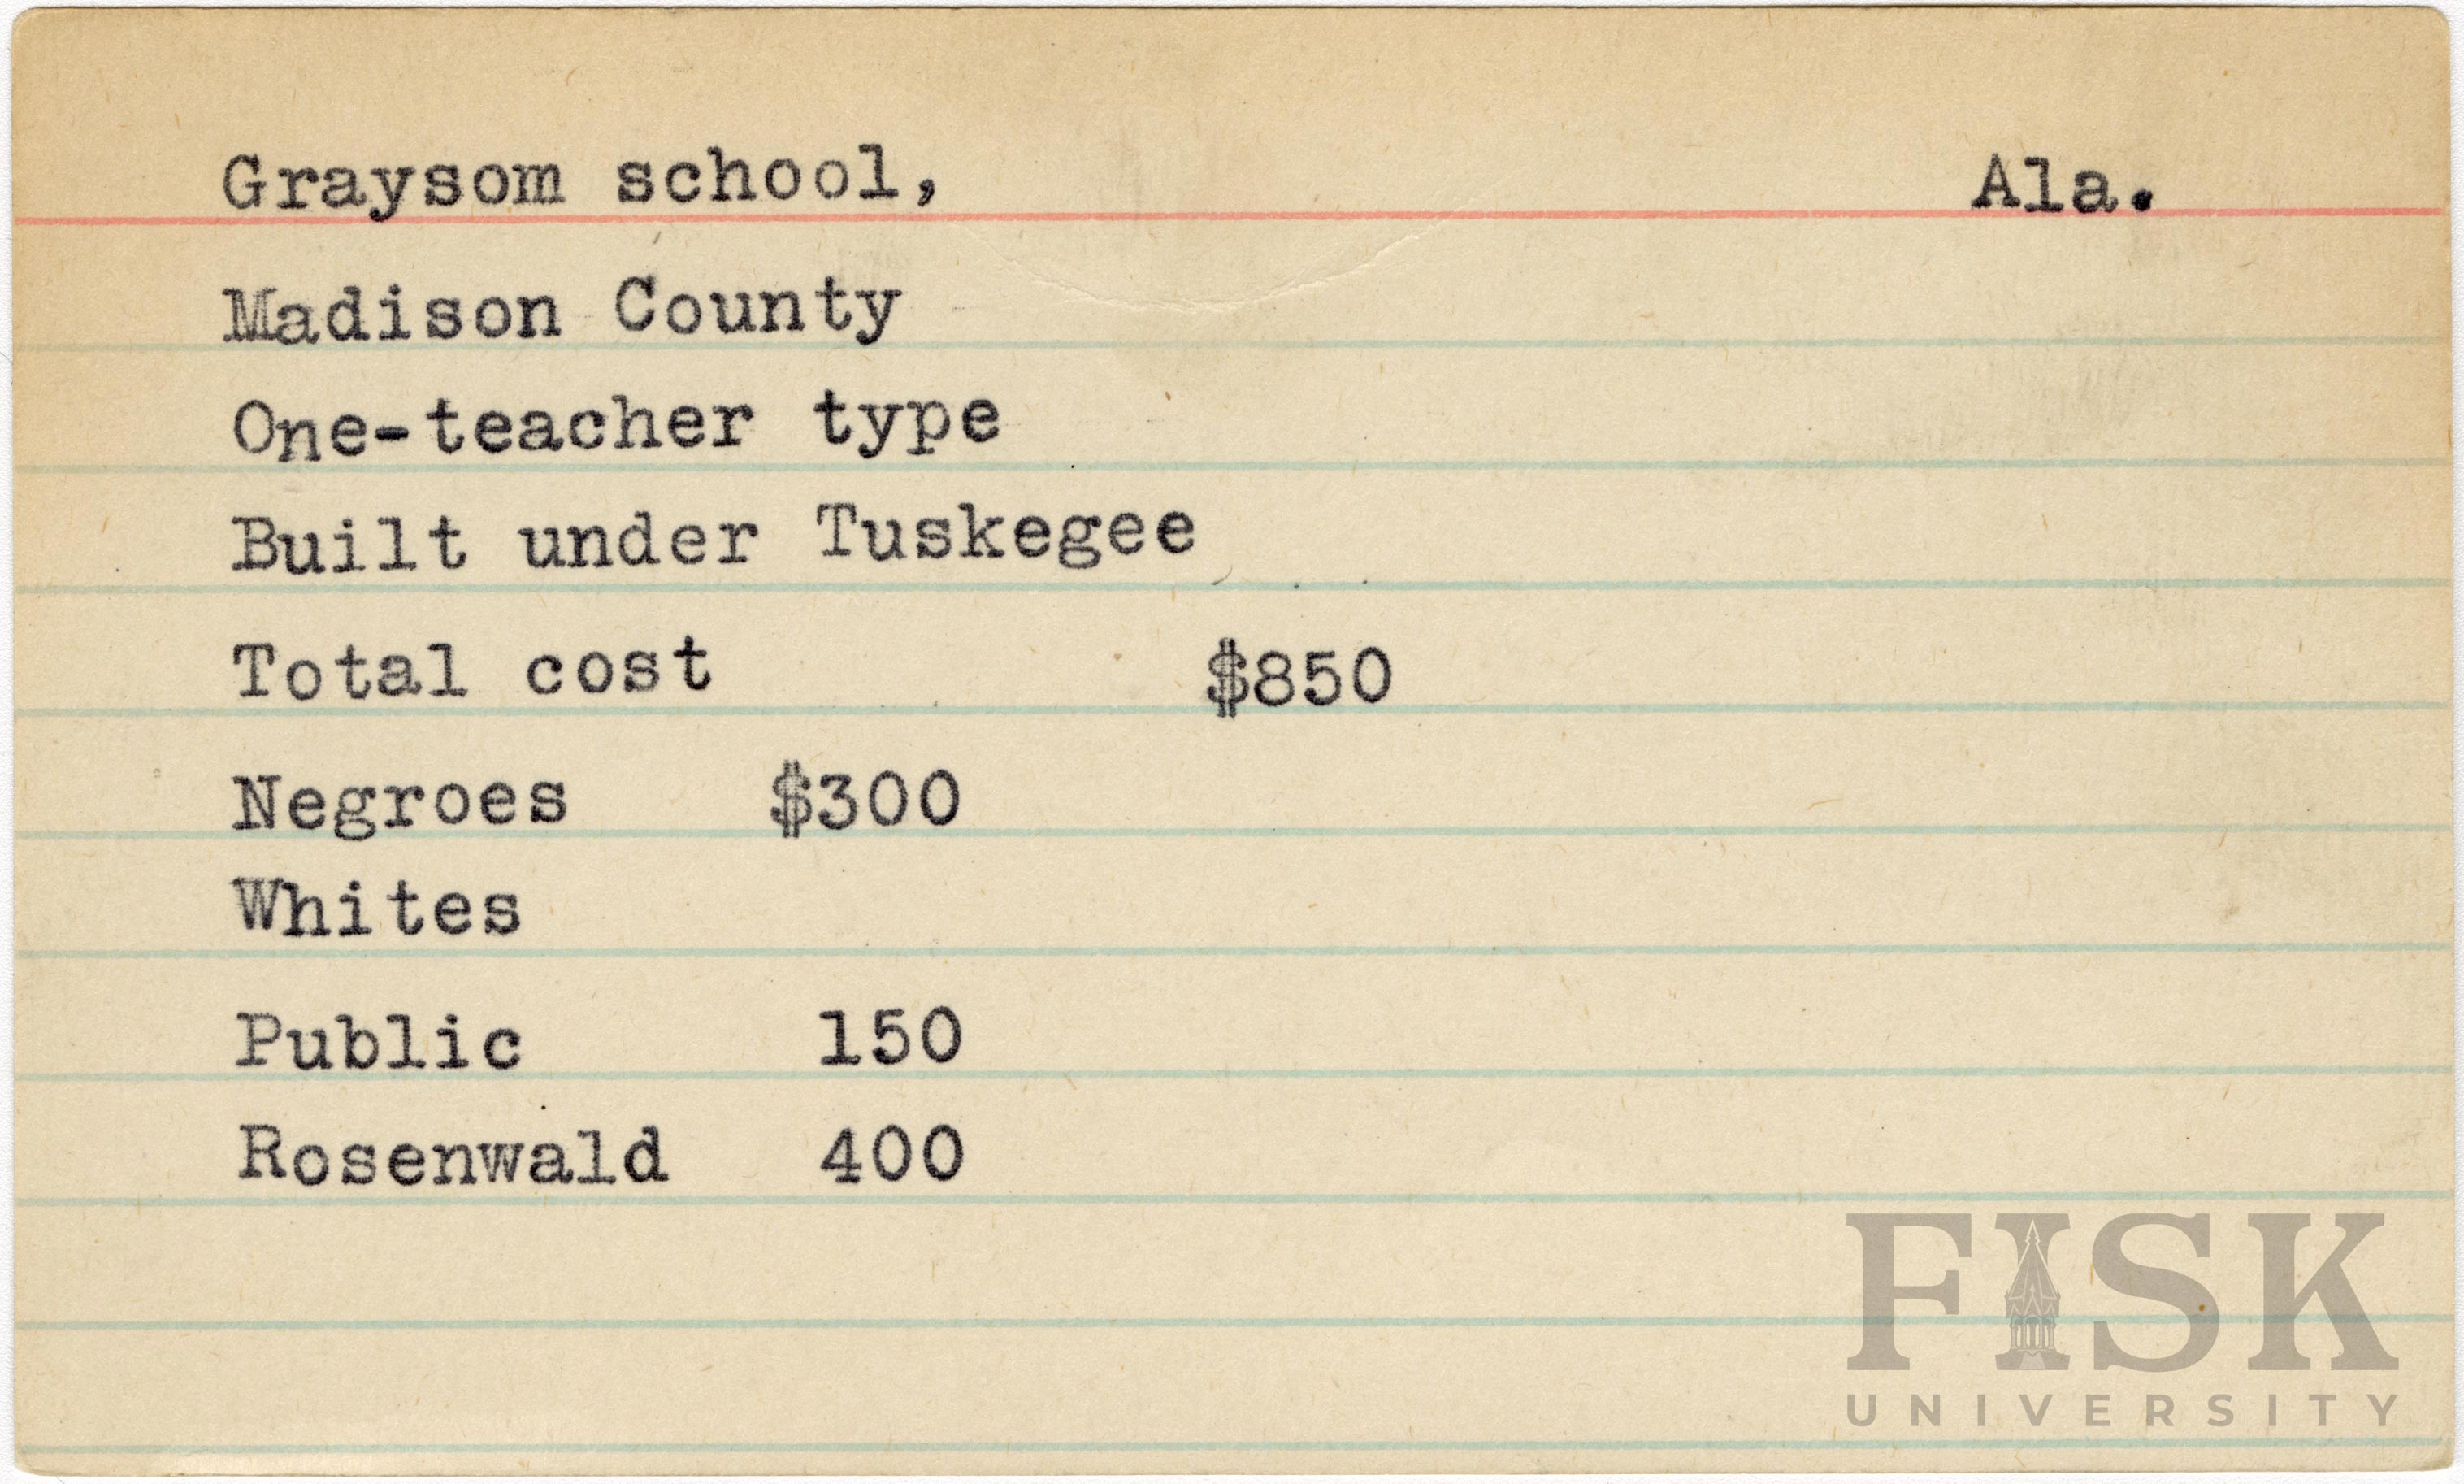 Graysom school, Ala.
Madison County
One-teacher type
Built under Tuskegee
Total cost $850
Negroes $300
Whites
Public 150
Rosenwald 400
FISK
UNIVERSITY